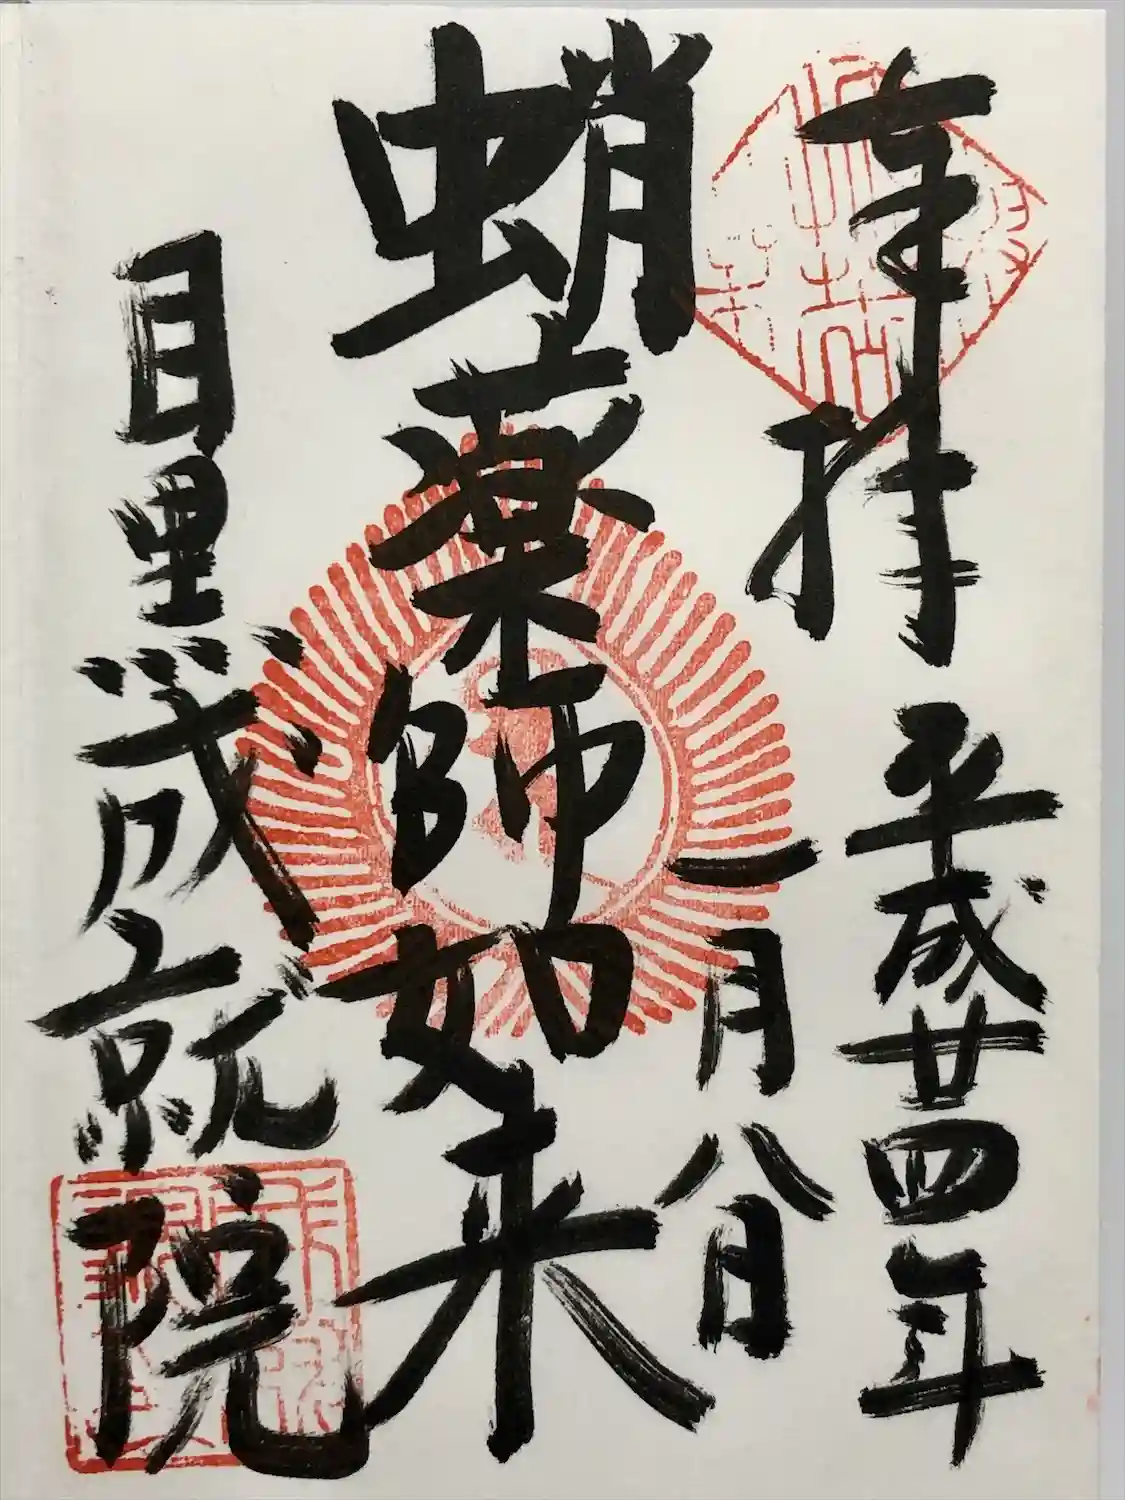 奉拝 平成廿四年
一月八日
蛸薬師如来
目黒 成就院